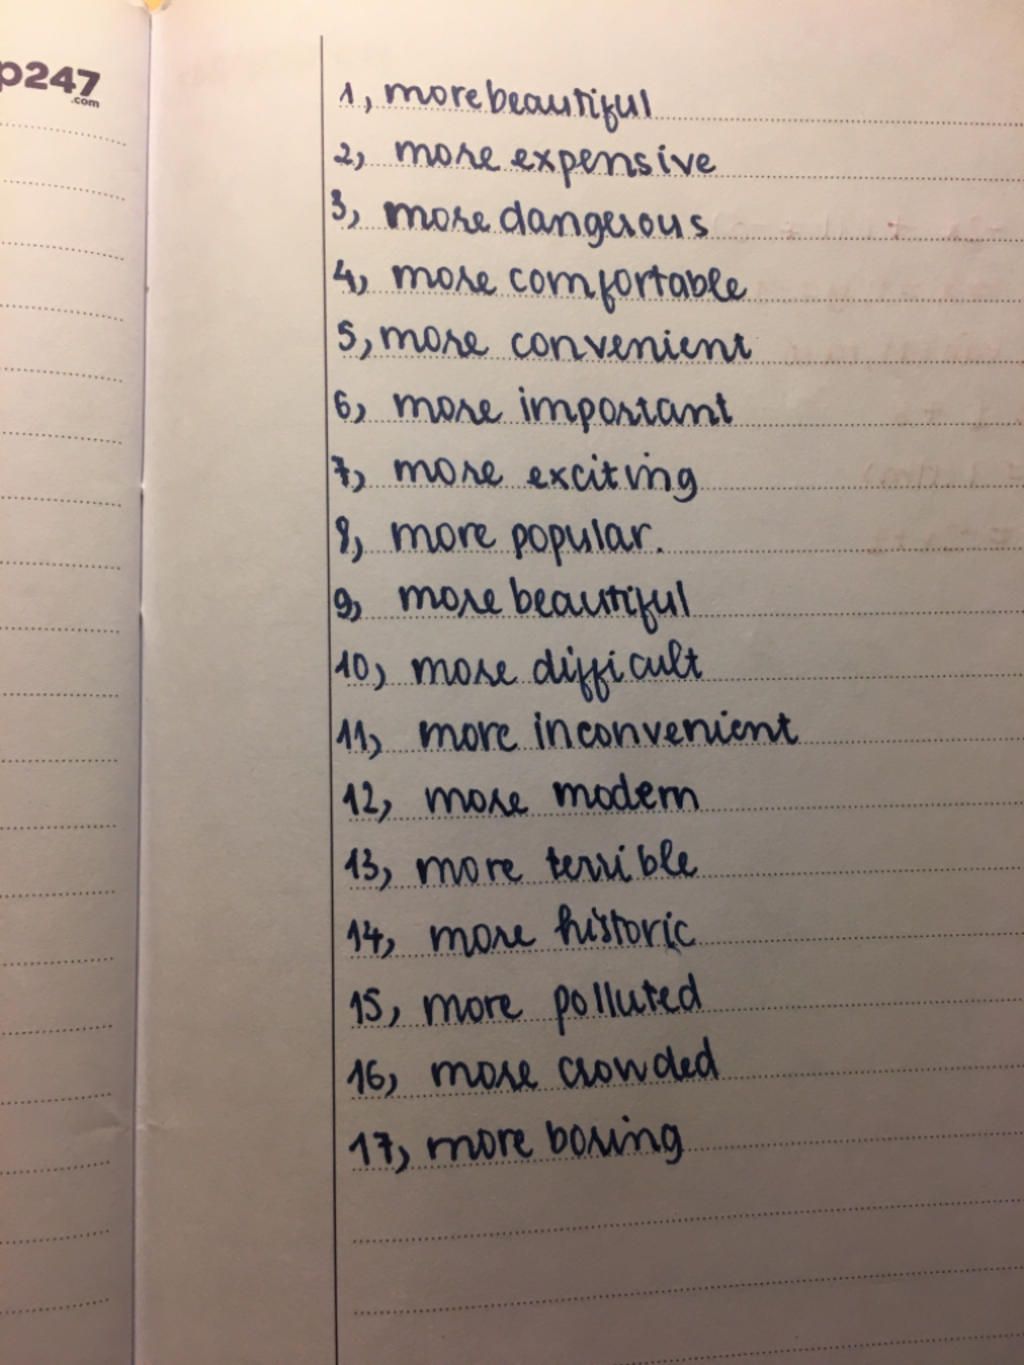 p247
.com
1, more beautiful
2, more expensive
3, more dangerous
4, more comfortable
5, more convenient
6, more important
7, more exciting
8, more popular.
9, more beautiful
10, more difficult
11, more inconvenient
12, more modern
13, more terrible
14, more historic
15, more polluted
16, more crowded
17, more boring